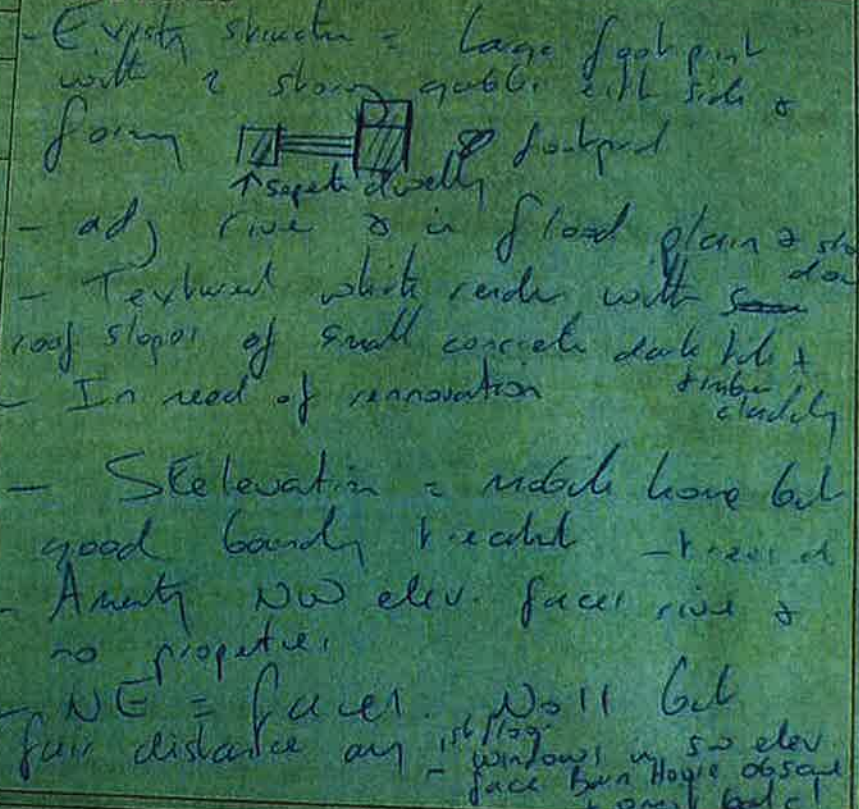 - Existing structure = Large footprint
with 2 storey gable eith side &
form footprint
↑ seperate dwelling
- adj rive & in flood plain &
- Textured white render with
roof slopes of small concrete dark tile +
timber cladding
- In need of rennovation
- SE elevation = mobile home but
good boundary treatmt - trees
- Amenity NW elev. faces rive &
no properties
- NE = faces No 11 but
fair distance any 1st floor
- windows in SW elev.
face Barn House obscured